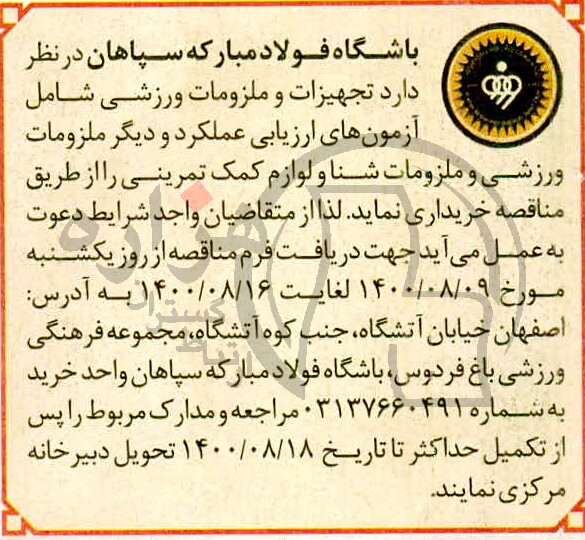 باشگاه فولاد مبارکه سپاهان در نظر
دارد تجهیزات و ملزومات ورزشی شامل
آزمون‌های ارزیابی عملکرد و دیگر ملزومات
ورزشی و ملزومات شنا و لوازم کمک تمرینی را از طریق
مناقصه خریداری نماید. لذا از متقاضیان واجد شرایط دعوت
به عمل می‌آید جهت دریافت فرم مناقصه از روز یکشنبه
مورخ ۱۴۰۰/۰۸/۰۹ لغایت ۱۴۰۰/۰۸/۱۶ به آدرس:
اصفهان خیابان آتشگاه، جنب کوه آتشگاه، مجموعه فرهنگی
ورزشی باغ فردوس، باشگاه فولاد مبارکه سپاهان واحد خرید
به شماره ۰۳۱۳۷۶۶۰۴۹۱ مراجعه و مدارک مربوط را پس
از تکمیل حداکثر تا تاریخ ۱۴۰۰/۰۸/۱۸ تحویل دبیرخانه
مرکزی نمایند.
هزاره